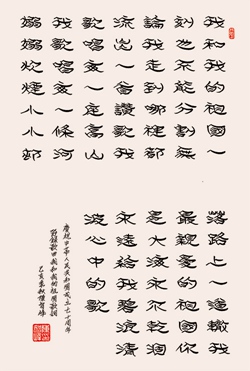 我和我的祖國一
刻也不能分割無
論我走到哪裡都
流出一首讚歌我
歌唱每一座高山
我歌唱每一條河
嫋嫋炊煙小小邨
落路上一道轍我
最親愛的祖國你
是大海永不乾涸
永遠給我碧浪清
波心中的歌
慶祝中華人民共和國成立七十周年
節錄歌曲我和我的祖國歌詞
己亥